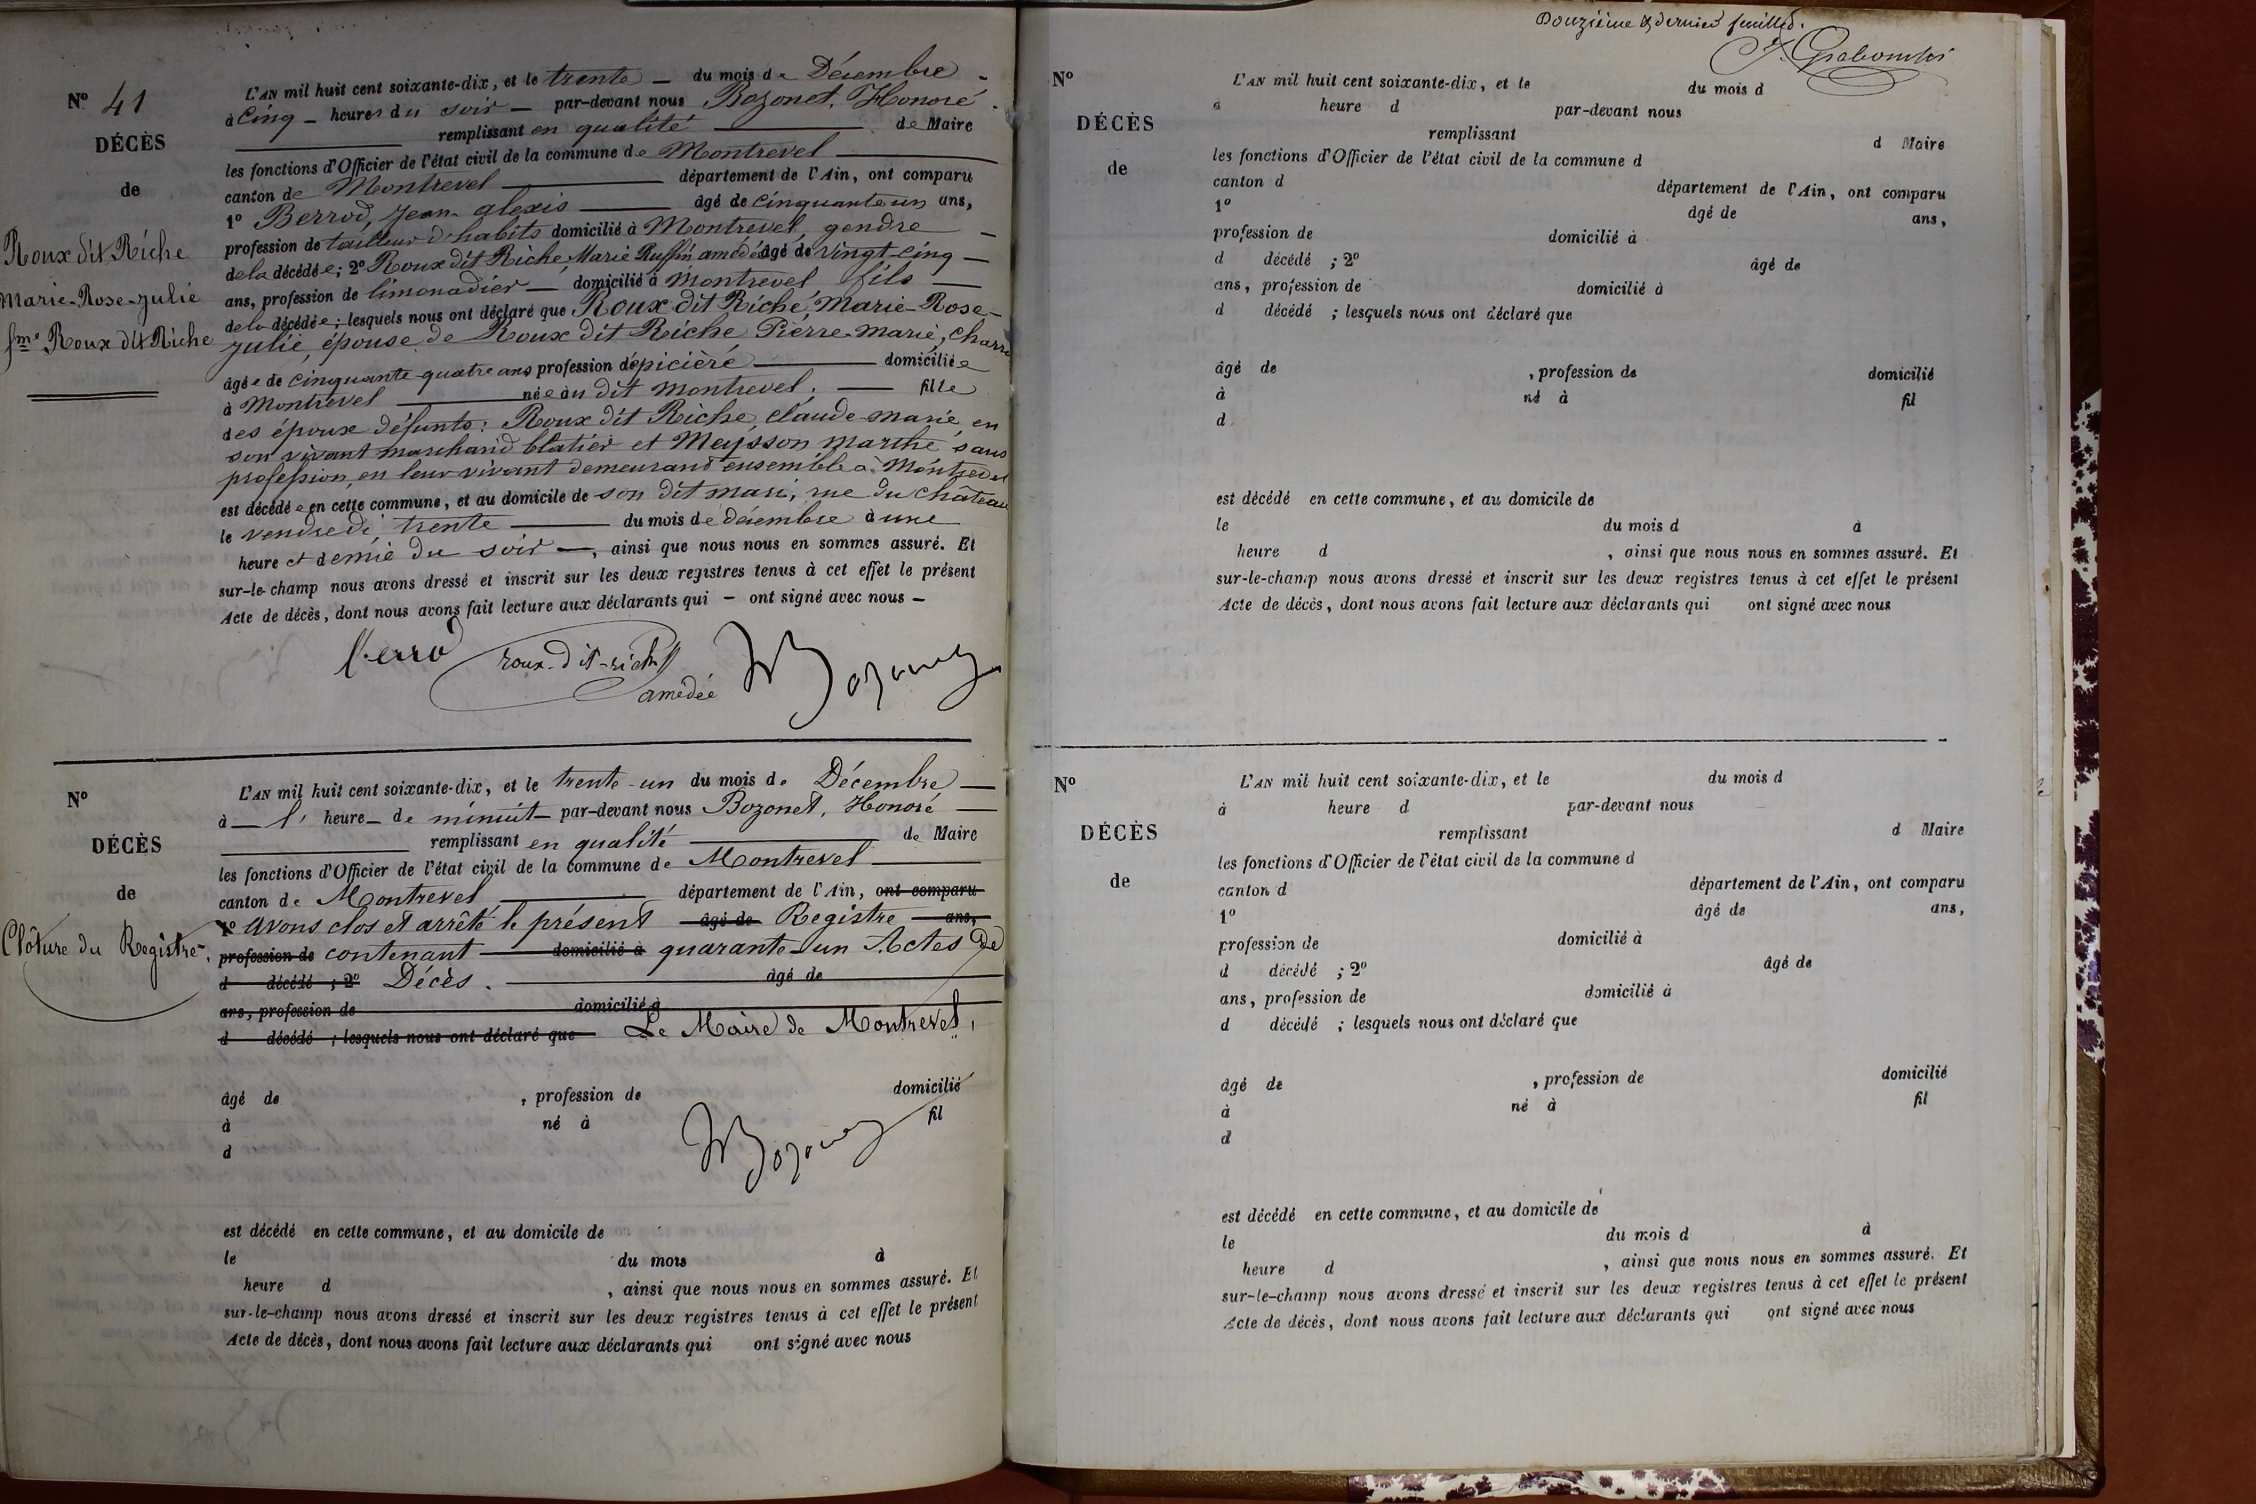 N° 41
DÉCÈS
de
Roux dit Riche
Marie-Rose-Julie
fme Roux dit Riche
L'AN mil huit cent soixante-dix, et le trente — du mois de Décembre
à Cinq — heures du soir — par-devant nous Bozonet, Honoré
remplissant en qualité de Maire
les fonctions d'Officier de l'état civil de la commune de Montrevel
canton de Montrevel département de l'Ain, ont comparu
1° Berrod, Jean-alexis âgé de cinquante un ans,
profession de tailleur d'habits domicilié à Montrevel, gendre
de la décédée; 2° Roux dit Riche Marie Ruffin amédé âgé de vingt-cinq
ans, profession de limonadier domicilié à Montrevel fils
de la décédée; lesquels nous ont déclaré que Roux dit Riche, Marie-Rose-
Julie, épouse de Roux dit Riche Pierre-marie,
âgée de cinquante-quatre ans profession d'épicière domiciliée
à Montrevel née au dit Montrevel, fille
des époux défunts: Roux dit Riche, claude-marie, en
son vivant marchand blatier et Meysson Marthe sans
profession, en leur vivant demeurand ensemble à Montrevel
est décédée en cette commune, et au domicile de son dit mari, rue du château
le vendredi, trente du mois de décembre à une
heure et demie du soir —, ainsi que nous nous en sommes assuré. Et
sur-le-champ nous avons dressé et inscrit sur les deux registres tenus à cet effet le présent
Acte de décès, dont nous avons fait lecture aux déclarants qui — ont signé avec nous —
Berrod roux-dit-riche
amédée
Bozonet
N°
DÉCÈS
de
Clôture du Registre.
L'AN mil huit cent soixante-dix, et le trente-un du mois de Décembre
à — l' heure — de minuit — par-devant nous Bozonet, Honoré
remplissant en qualité de Maire
les fonctions d'Officier de l'état civil de la commune de Montrevel
canton de Montrevel département de l'Ain, ont comparu
1° avons clos et arrêté le présent âgé de Registre ans,
profession de contenant domicilié à quarante-un Actes de
d décédé ; 2° Décès. âgé de
ans, profession de domicilié à
d décédé ; lesquels nous ont déclaré que Le Maire de Montrevel,
âgé de , profession de domicilié
à né à fil
d
Bozonet
est décédé en cette commune, et au domicile de
le du mois à
heure d , ainsi que nous nous en sommes assuré. Et
sur-le-champ nous avons dressé et inscrit sur les deux registres tenus à cet effet le présent
Acte de décès, dont nous avons fait lecture aux déclarants qui ont signé avec nous
Douzième & dernier feuillet.
N°
DÉCÈS
de
L'AN mil huit cent soixante-dix, et le du mois d
à heure d par-devant nous
remplissant d Maire
les fonctions d'Officier de l'état civil de la commune d
canton d département de l'Ain, ont comparu
1° âgé de ans,
profession de domicilié à
d décédé ; 2° âgé de
ans, profession de domicilié à
d décédé ; lesquels nous ont déclaré que
âgé de , profession de domicilié
à né à fil
d
est décédé en cette commune, et au domicile de
le du mois d à
heure d , ainsi que nous nous en sommes assuré. Et
sur-le-champ nous avons dressé et inscrit sur les deux registres tenus à cet effet le présent
Acte de décès, dont nous avons fait lecture aux déclarants qui ont signé avec nous
N°
DÉCÈS
de
L'AN mil huit cent soixante-dix, et le du mois d
à heure d par-devant nous
remplissant d Maire
les fonctions d'Officier de l'état civil de la commune d
canton d département de l'Ain, ont comparu
1° âgé de ans,
profession de domicilié à
d décédé ; 2° âgé de
ans, profession de domicilié à
d décédé ; lesquels nous ont déclaré que
âgé de , profession de domicilié
à né à fil
d
est décédé en cette commune, et au domicile de
le du mois d à
heure d , ainsi que nous nous en sommes assuré. Et
sur-le-champ nous avons dressé et inscrit sur les deux registres tenus à cet effet le présent
Acte de décès, dont nous avons fait lecture aux déclarants qui ont signé avec nous